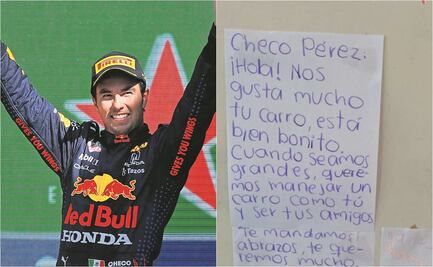 PIRELLI
GIVES YOU WINGS
GIVES YOU WINGS
Mobil 1
HONDA
ORACLE
Tezos
Red Bull
HONDA
CHECO
Checo Pérez:
¡Hola! Nos
gusta mucho
tu carro, está
bien bonito.
Cuando seamos
grandes, quere-
mos manejar un
carro como tú
y ser tus amigos
Te mandamos
abrazos, te que-
remos mucho